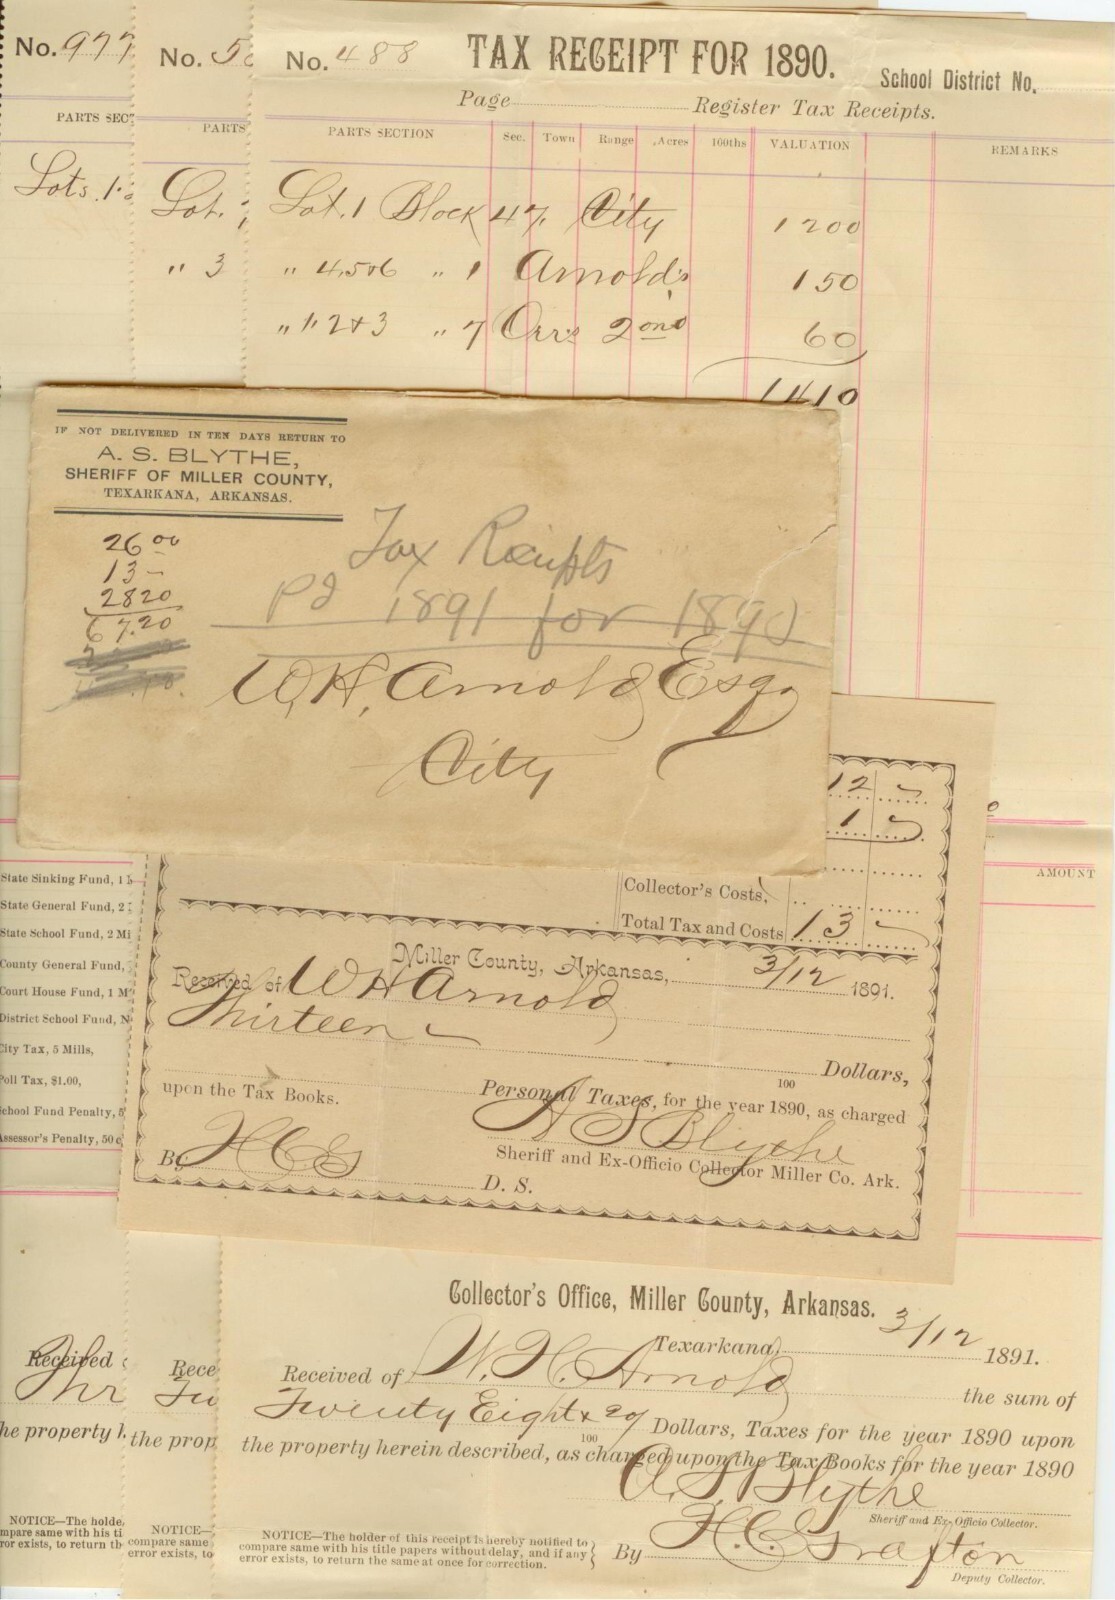 No. 977
PARTS SEC
Lots. 1
No. 5
PARTS
Lot.
" 3
No. 488 TAX RECEIPT FOR 1890. School District No.
Page Register Tax Receipts.
PARTS SECTION Sec. Town Range Acres 100ths VALUATION REMARKS
Lot. 1 Block 47. City 1200
" 4,5&6 " 1 Arnold's 150
" 1" 2 & 3 " 7 Orr's 2ond 60
1410
IF NOT DELIVERED IN TEN DAYS RETURN TO
A. S. BLYTHE,
SHERIFF OF MILLER COUNTY,
TEXARKANA, ARKANSAS.
26 00
13 –
2820
67.20
Tax Receipts
Pd 1891 for 1890
W, H, Arnold Esq.
City
12
1
Collector's Costs,
Total Tax and Costs 13
Miller County, Arkansas, 3/12 1891.
Received of W H Arnold
Thirteen
100 Dollars,
Personal Taxes, for the year 1890, as charged
upon the Tax Books.
A S Blythe
Sheriff and Ex-Officio Collector Miller Co. Ark.
By H C G D. S.
AMOUNT
State Sinking Fund, 1
State General Fund, 2
State School Fund, 2 Mi
County General Fund,
Court House Fund, 1 M
District School Fund, N
City Tax, 5 Mills,
Poll Tax, $1.00,
School Fund Penalty, 5
Assessor's Penalty, 50 c
Collector's Office, Miller County, Arkansas.
Texarkana, 3/12 1891.
Received of W. H. Arnold the sum of
Twenty Eight & 20/100 Dollars, Taxes for the year 1890 upon
the property herein described, as charged upon the Tax Books for the year 1890
A. S. Blythe
Sheriff and Ex-Officio Collector.
By H. C. Grafton
Deputy Collector.
NOTICE—The holder of this receipt is hereby notified to
compare same with his title papers without delay, and if any
error exists, to return the same at once for correction.
Received
Thr
he property h
NOTICE—The holde
mpare same with his ti
ror exists, to return th
Rece
Tw
the prop
NOTICE—
compare same
error exists, to